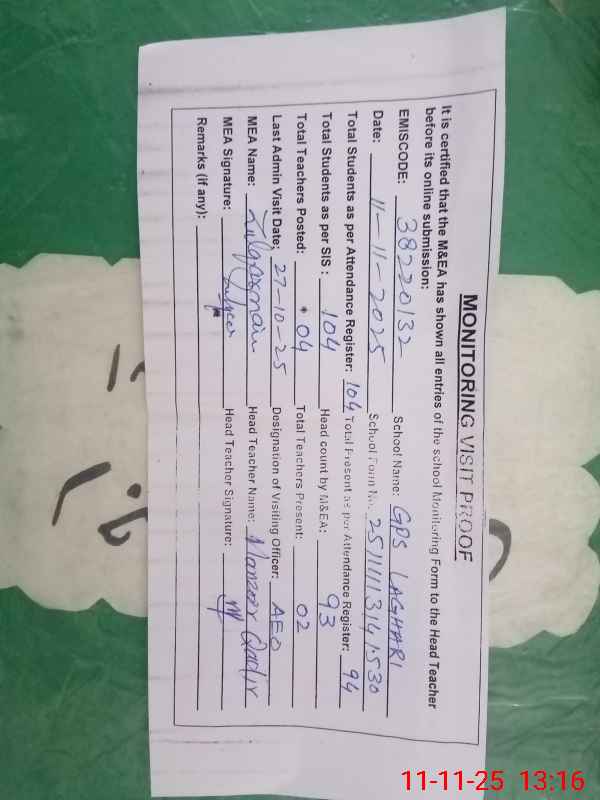 MONITORING VISIT PROOF
It is certified that the M&EA has shown all entries of the school Monitoring Form to the Head Teacher
before its online submission:
EMISCODE: 38220132 School Name: GPS LAGHARI
Date: 11-11-2025 School Form No. 25111113141530
Total Students as per Attendance Register: 104 Total Present as per Attendance Register: 94
Total Students as per SIS : 104 Head count by M&EA: 93
Total Teachers Posted: 04 Total Teachers Present: 02
Last Admin Visit Date: 27-10-25 Designation of Visiting Officer: AEO
MEA Name: Head Teacher Name: Manzoor Qadir
MEA Signature: Head Teacher Signature:
Remarks (if any):
11-11-25 13:16